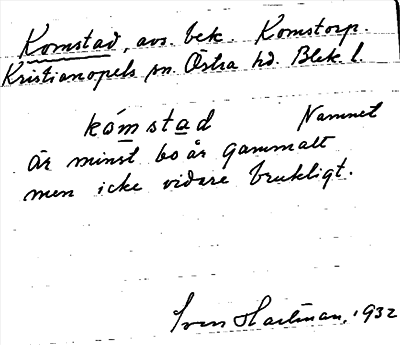 Komstad, avs. bek. Komstorp.
Kristianopels sn. Östra hd. Blek l.
kómstad Namnet
är minst 60 år gammalt
men icke vidare brukligt.
Sven Hartman, 1932